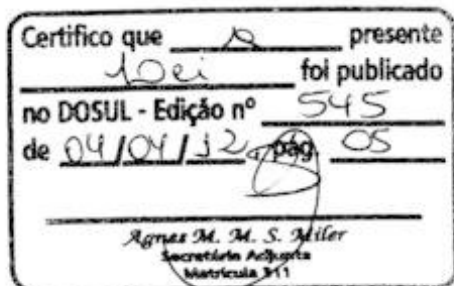 Certifico que a presente
Lei foi publicado
no DOSUL - Edição nº 545
de 04/04/12, pág. 05
Agnes M. M. S. Miler
Secretária Adjunta
Matrícula 311